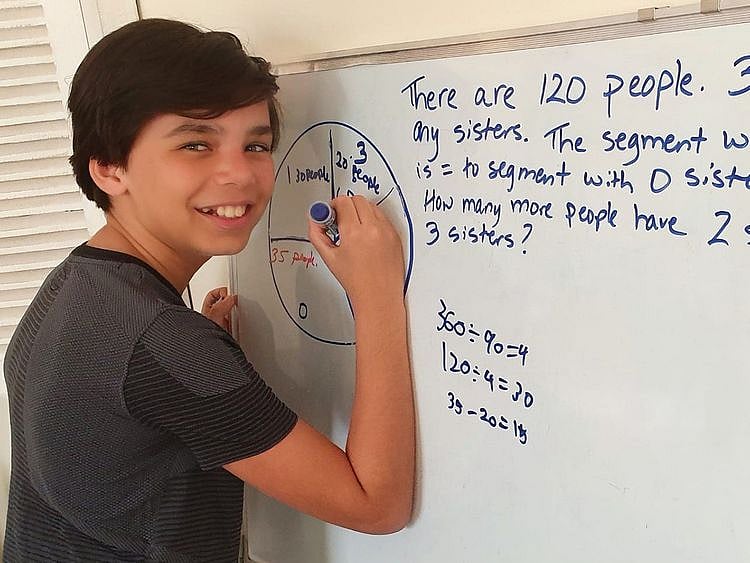 There are 120 people. 3
any sisters. The segment w
is = to segment with 0 siste
How many more people have 2 s
3 sisters?
1 30 people
20 3
people
35 people.
0
360÷90=4
120÷4=30
35-20=15